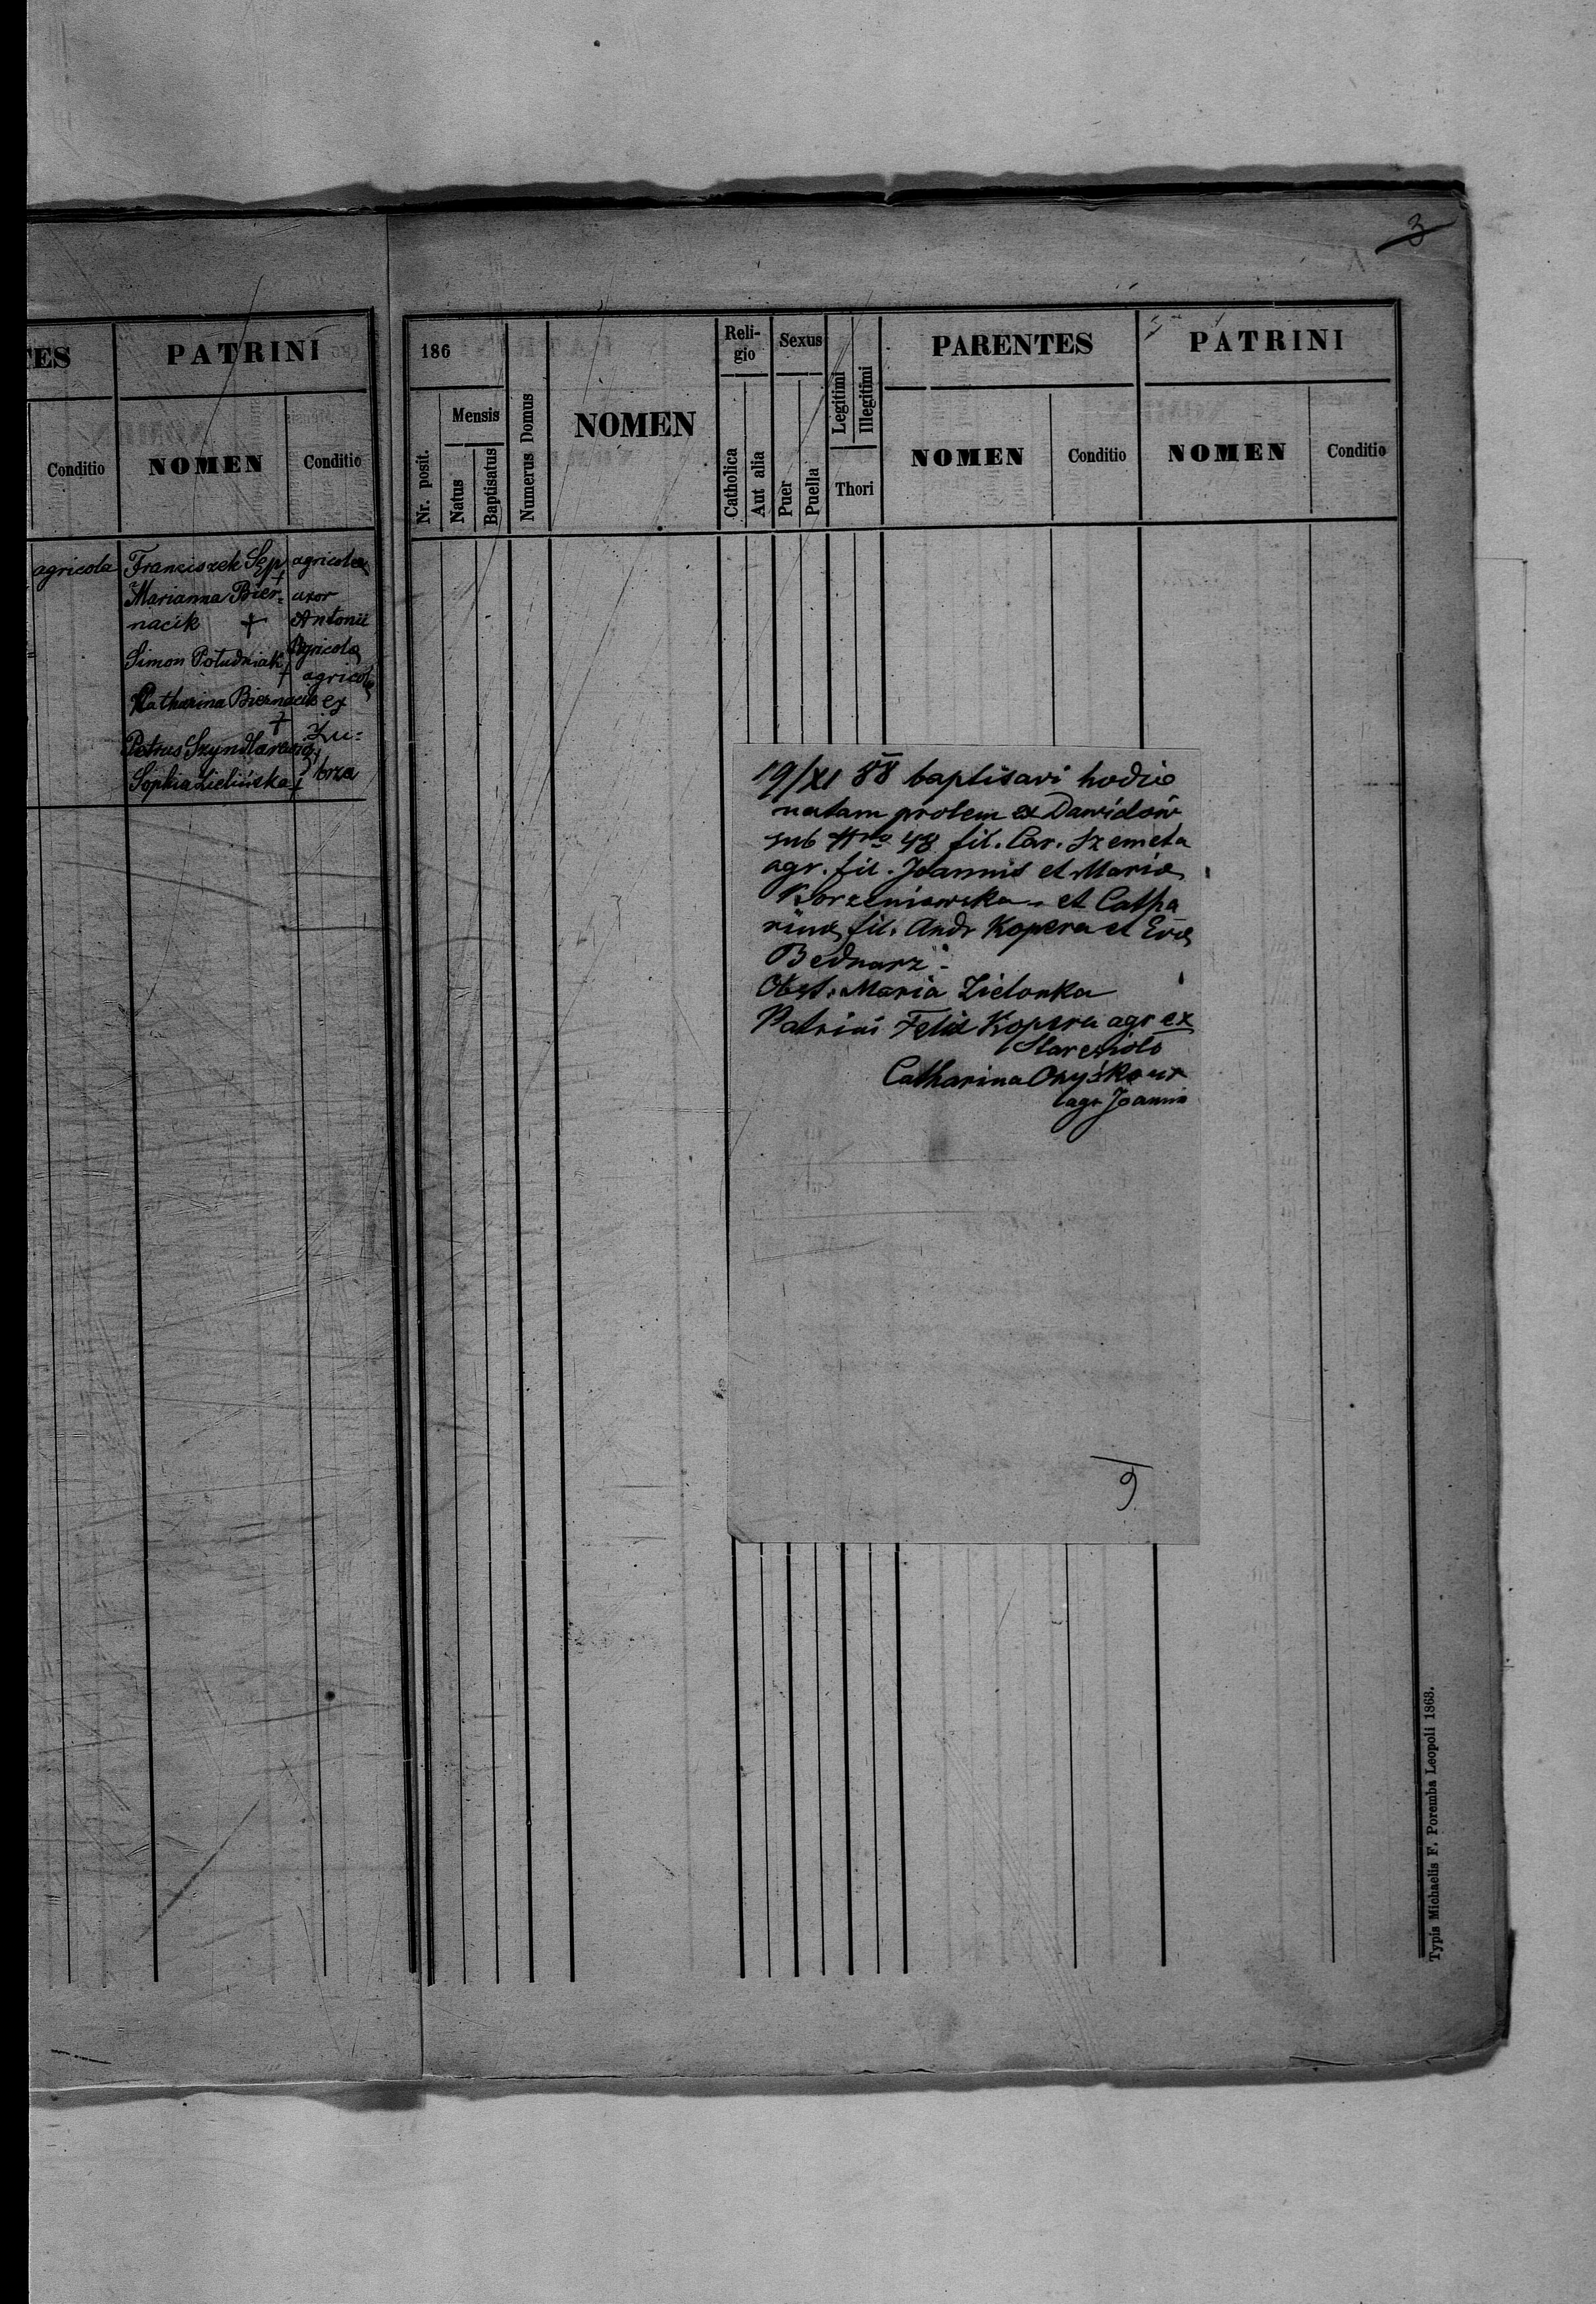 3
TES
PATRINI
Conditio
NOMEN
Conditio
agricola
Franciszek Sęp
agricola
Marianna Bier-
uxor
nacik
Antonii
Simon Południak
Agricola
agricola
Katharina Biernacik
ex
Petrus Szyndlarewicz
Zu-
Sophia Zielińska
brza
186
Nr. posit.
Mensis
Natus
Baptisatus
Numerus Domus
NOMEN
Reli-
gio
Catholica
Aut alia
Sexus
Puer
Puella
Legitimi
Illegitimi
Thori
PARENTES
NOMEN
Conditio
PATRINI
NOMEN
Conditio
19/XI 88 baptisavi hodie
natam prolem ex Dawidów
sub Nro 48 fil. Car. Szemeta
agr. fil. Joannis et Maria
Korzeniowska et Catha
rina fil. Andr Kopera et Eva
Bednarz
Obst. Maria Zielonka
Patrini Felix Kopera agr ex
Staresioło
Catharina Onyśko ux
agr Joannis
9
Typis Michaelis F. Poremba Leopoli 1863.